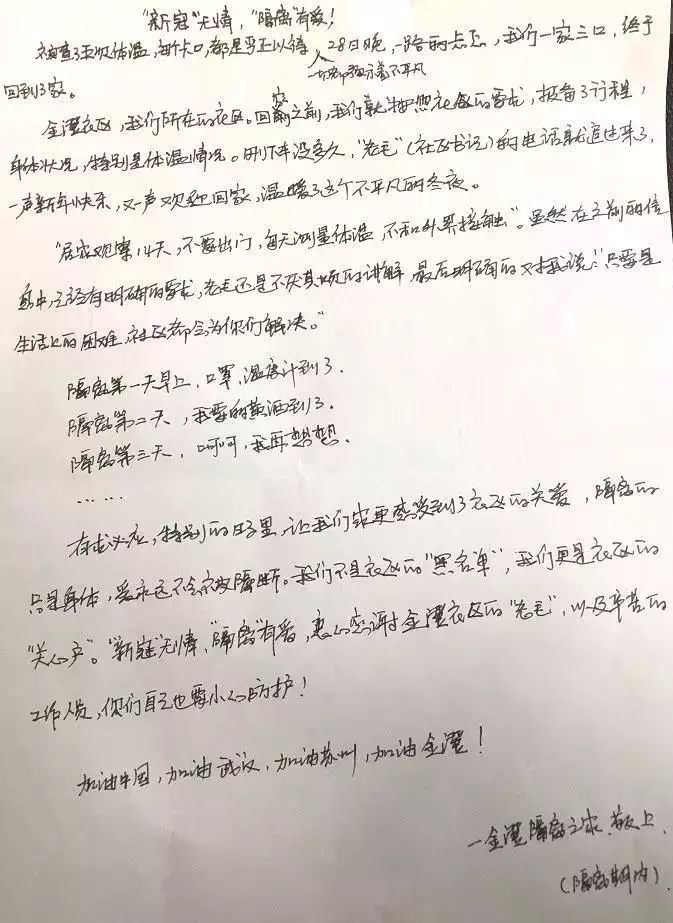 "新冠"无情，"隔离"有爱！
被查了五次体温，每个卡口，都是严正以待，28日晚，一路的忐忑，我们一家三口，终于
一切都预示着不平凡
回到了家。
金澄社区，我们所在的社区。回家之前，我们就按照社区的要求，报备了行程，
身体状况，特别是体温情况。刚下车没多久，"老毛"（社区书记）的电话就追过来了，
一声新年快乐，又一声欢迎回家，温暖了这个不平凡的冬夜。
"居家观察14天，不要出门，每天测量体温，不和外界接触"。虽然在之前的信
息中，已经有明确的要求，老毛还是不厌其烦的讲解，最后明确的又对我说："只要是
生活上的困难，社区都会为你们解决。"
隔离第一天早上，口罩、温度计到了。
隔离第二天，我要的黄酒到了。
隔离第三天，呵呵，我再想想。
……
有求必应，特别的日子里，让我们家更感受到了社区的关爱，隔离的
只是身体，爱永远不会被隔断。我们不是社区的"黑名单"，我们更是社区的
"关心户"。"新冠"无情，"隔离"有爱，衷心感谢金澄社区的"老毛"，以及辛苦的
工作人员，你们自己也要小心防护！
加油中国，加油武汉，加油苏州，加油金澄！
—金澄隔离之家 敬上
（隔离期内）